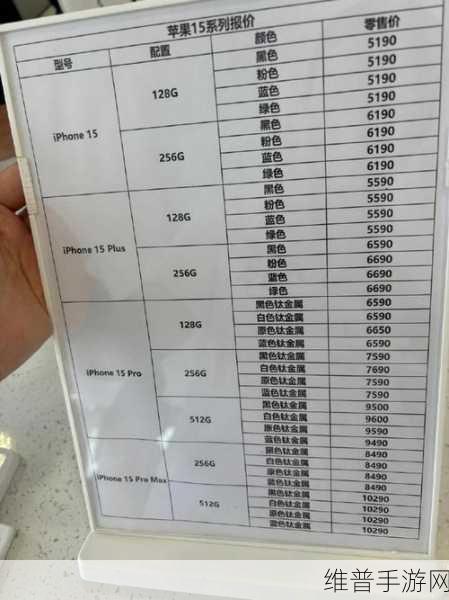 苹果15系列报价
型号 配置 颜色 零售价
iPhone 15 128G 黑色 5190
粉色 5190
蓝色 5190
绿色 5190
256G 黑色 6190
粉色 6190
蓝色 6190
绿色 6190
iPhone 15 Plus 128G 黑色 5590
粉色 5590
蓝色 5590
绿色 5590
256G 黑色 6690
粉色 6690
蓝色 6690
绿色 6690
iPhone 15 Pro 128G 黑色钛金属 6590
白色钛金属 6590
原色钛金属 6650
蓝色钛金属 6590
256G 黑色钛金属 7590
白色钛金属 7690
原色钛金属 7590
蓝色钛金属 7590
512G 黑色钛金属 9500
白色钛金属 9600
原色钛金属 9590
蓝色钛金属 9490
iPhone 15 Pro Max 256G 黑色钛金属 8490
白色钛金属 8490
原色钛金属 8490
蓝色钛金属 8490
512G 黑色钛金属 10290
白色钛金属 10290
原色钛金属 10290
蓝色钛金属 10290
维普手游网